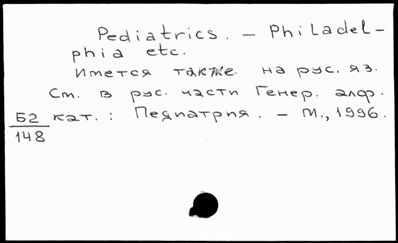 Pediatrics. – Philadel-
phia etc.
Имеется также на рус. яз.
См. в рус. части Генер. алф.
Б2 кат.: Педиатрия. – М., 1996.
148